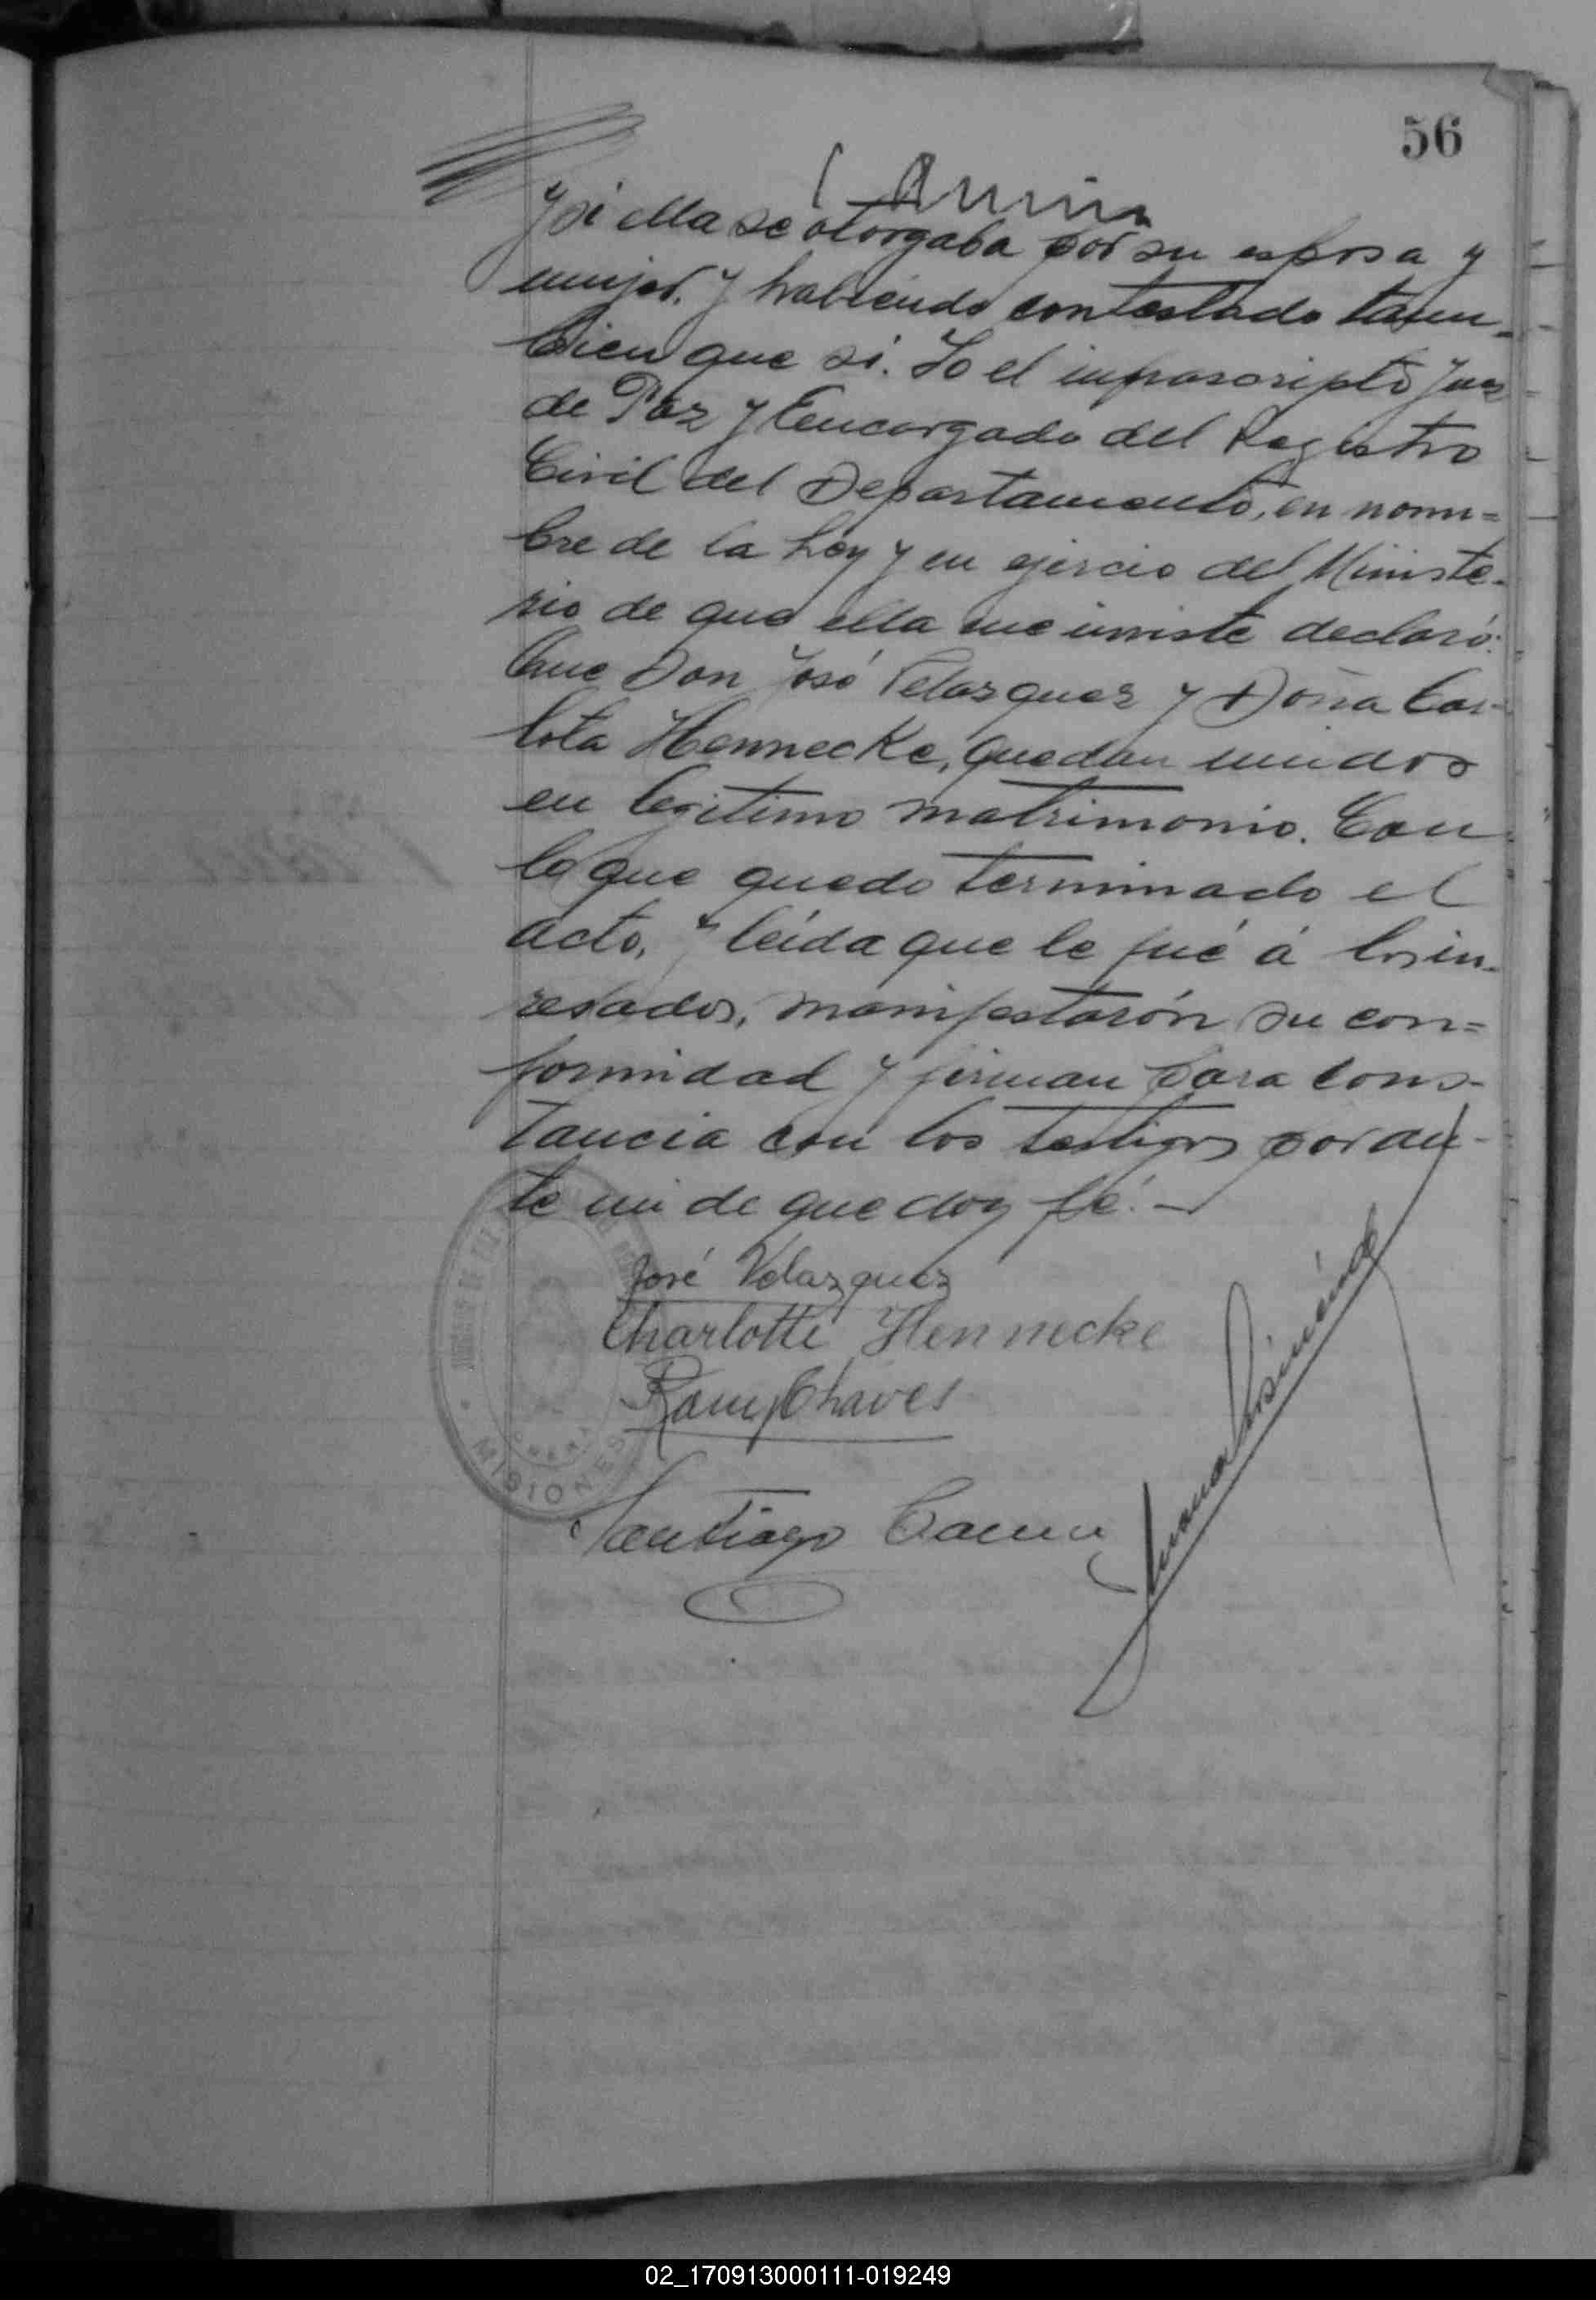 56
y si ella se otorgaba por su esposa y
mujer. Y habiendo contestado tam-
bien que si. Yo el infrascripto Juez
de Paz y Encargado del Registro
Civil del Departamento, en nom=
bre de la Ley y en ejercio del Ministe-
rio de que ella me inviste declaró:
Que Don José Velazquez y Doña Car-
lota Hennecke, quedan unidos
en legitimo matrimonio. Con
lo que quedo terminado el
acto, y leída que le fué á los in-
resados, manifestarón su con=
formidad y firman para cons-
tancia con los testigos por an-
te mi de que doy fé. —
José Velazquez
Charlotte Hennecke
Chaves
MISIONES
Santiago
02_170913000111-019249